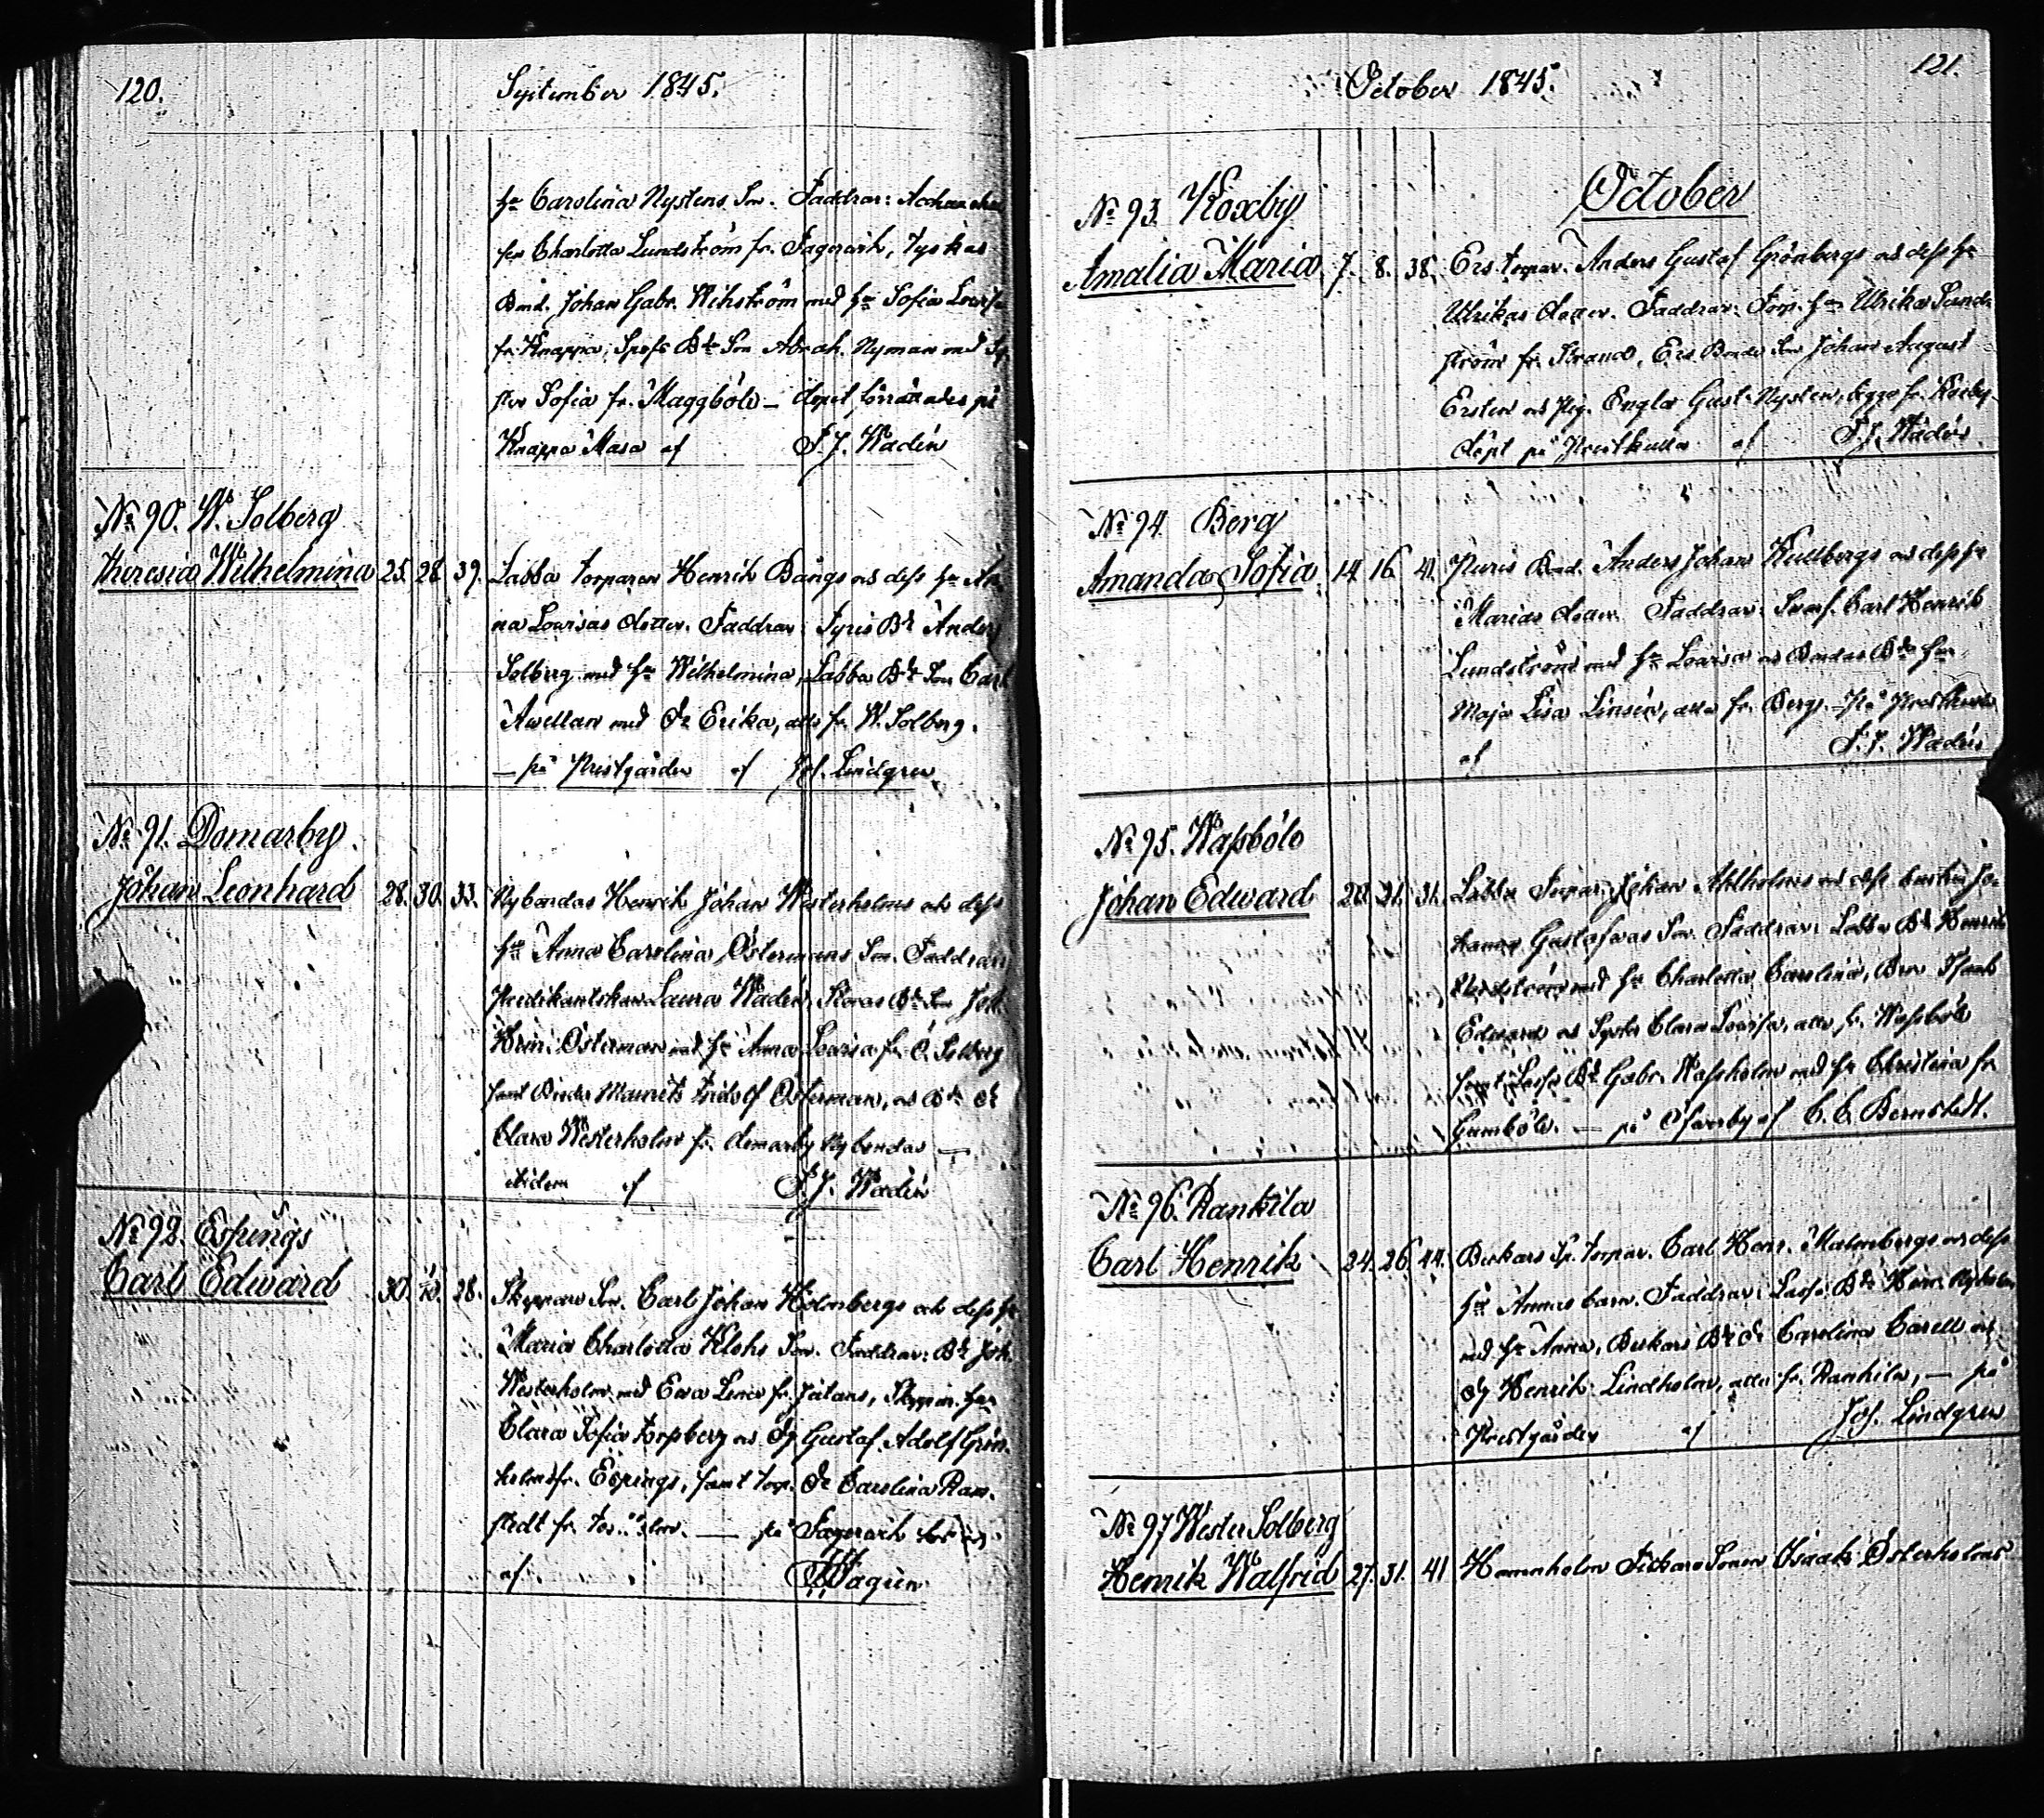 120.
September 1845.
hu Carolina Nystens Son. Faddrar:
Charlotta Lundström fr. Fagervik, Tyskas
Bond. Johan Gabr. Wikström med hu Sofia Lovisa
fr. Knappa, Spofs Bde Son Abrah. Nyman med Sy-
ster Sofia fr. Maggböle – dopet förrättades på
Knappa Masa af F. J. Wadén
No 90. W. Solberg
Theresia Wilhelmina 25. 28. 39. Labba torparen Henrik Bångs och dess hu An-
na Lovisas dotter. Faddrar: Tyris Bde Anders
Solberg med hu Wilhelmina, Labba Bde Son Carl
Awellan med dr Erika, alla fr. W. Solberg.
— på Prestgården af Jos. Lindgren
No 91. Domarby.
Johan Leonhard 28. 30. 33. Nybondas Henrik Johan Westerholms och dess
hu Anna Carolina Östermans Son. Faddrar:
Predikantskan Laura Wadén, Storas Bde Son Joh.
Henr. Österman med hu Anna Lovisa fr. Ö. Solberg
samt Bonden Maurits Fridolf Österman, och Bde dr
Clara Westerholm fr. domarby Nybondas —
ibidem af F. J. Wadén
No 92. Espings
Carl Edward 30. 28. Skeppar Son. Carl Johan Holmbergs och dess hu
Maria Charlotta Klohs Son. Faddrar: Bde Joh.
Westerholm med Ewa Lena fr. Jutans, Skeppar hu
Clara Sofia Forsberg och dg Gustaf Adolf Grön-
holm fr. Espings, samt torp. dr Carolina Ram-
stedt fr. — på Fagervik
af Wagién
121.
October 1845.
October
No 93. Koxby
Amalia Maria 7. 8. 38. Ers torpar. Anders Gustaf Grönbergs och dess hu
Ulrikas dotter. Faddrar: Torp. hu Ulrika Sund-
ström fr. Strand, Ers Bonde Son Johan August
Ersten och Pig. Engla Gust. Nysten, begge fr. Koxby.
döpt på Prestkulla af F. J. Wadén.
No 94. Berg
Amanda Sofia 14. 16. 41. Puris Bond. Anders Johan Kullbergs och dess hu
Marias dotter. Faddrar: Carl Henrik
Lundström med hu Lovisa och Bondas Bde hu
Maja Lisa Linsén, alla fr. Berg. — På Prestkulla
af F. J. Wadén
No 95. Wassböle
Johan Edward 20. 21. 31. Labba Torpar. Johan Ahlholms och dess hustru Jo-
hanna Gustafwas Son. Faddrar: Labba Bde Henrik
med hu Charlotta Carolina, Bror Isaak
Edward och Syster Clara Lovisa, alla fr. Wassböle
samt Lasses Bde Gabr. Wassholm med hu Christina fr.
Gumböle. — på Öfwerby af C. E. Bernstedt.
No 96. Rankila
Carl Henrik 24. 26. 44. Beckars Sp. torpar. Carl Henr. Malmbergs och dess
hu Annas barn. Faddrar: Lasse Bde Henr. Nyholm
med hu Anna, Beckars Bde dr Carolina Carell och
dg Henrik Lindholm, alla fr. Rankila, — på
Prestgården af Jos. Lindgren
No 97 Wester Solberg
Henrik Walfrid 27. 31. 41 Hommholm Fiskare Sonen Isaak Österholms